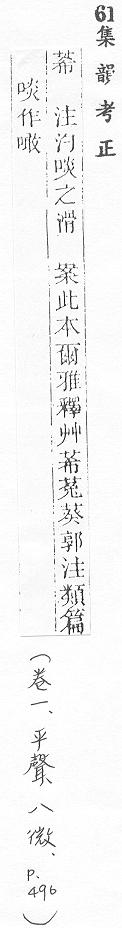 61集韻考正
莃 注汋啖之滑 案此本爾雅釋艸莃菟葵郭注類篇
啖作噉
(卷一、平聲、八微、P.496)